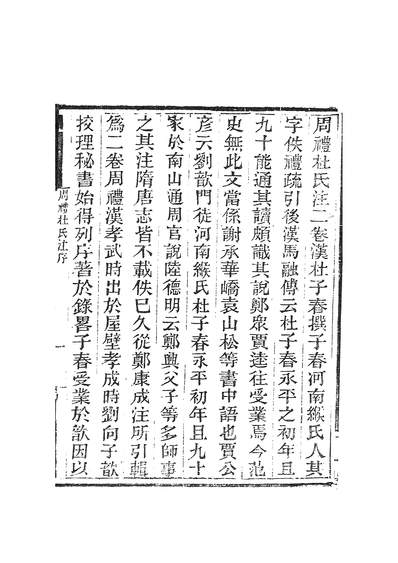 周禮杜氏注二卷漢杜子春撰子春河南緱氏人其
字佚禮疏引後漢馬融傳云杜子春永平之初年且
九十能通其讀頗識其說鄭衆賈逵往受業焉今范
史無此文當係謝承華嶠袁山松等書中語也賈公
彥云劉歆門徒河南緱氏杜子春永平初年且九十
家於南山通周官說陸德明云鄭興父子等多師事
之其注隋唐志皆不載佚已久從鄭康成注所引輯
為二卷周禮漢孝武時出於屋壁孝成時劉向子歆
挍理秘書始得列序著於錄畧子春受業於歆因以
周禮杜氏注序
一